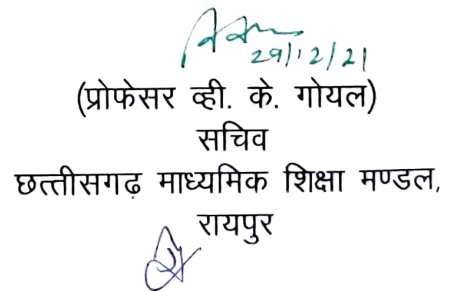 29/12/21
(प्रोफेसर व्ही. के. गोयल)
सचिव
छत्तीसगढ़ माध्यमिक शिक्षा मण्डल,
रायपुर